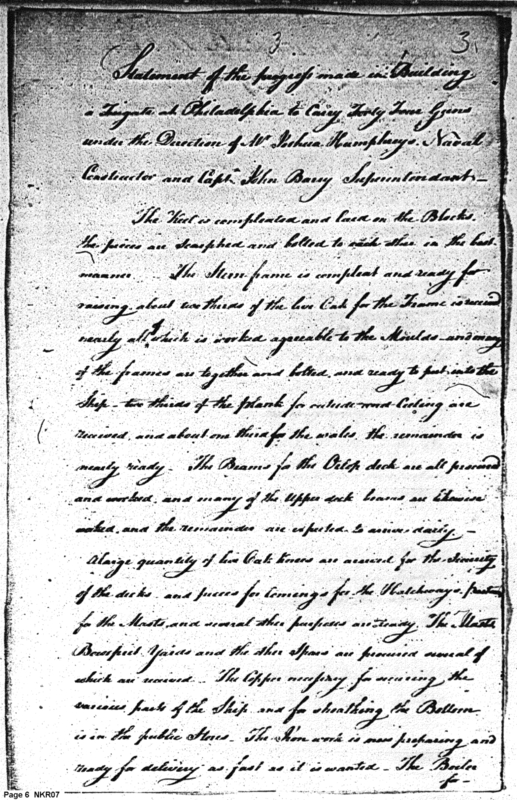 3
3
Statement of the progress made in Building
a Frigate at Philadelphia to Carry Forty Four Guns
under the Direction of Mr. Joshua Humphreys. Naval
Constructor and Captn. John Barry Superintendant -
The Keel is compleated and laid on the Blocks.
the pieces are scarphed and bolted to each other in the best
manner. - The Stern frame is compleat and ready for
raising. about two thirds of the live Oak for the Frame is received
nearly all of which is worked agreable to the Moulds and many
of the frames are together and bolted, and ready to put into the
Ship - two thirds of the plank for outside and Ceiling are
received, and about one third for the wales, the remainder is
nearly ready - The Beams for the Orlop deck are all procured
and worked, and many of the Upper deck beams are likewise
worked, and the remainder are expected to arrive daily -
A large quantity of live Oak knees are arrived for the Security
of the decks and pieces for Comings for the Hatchways,
for the Masts, and several other purposes are ready. The Masts
Bowsprit Yards and the other Spars are procured several of
which are received - The Copper necessary for securing the
various parts of the Ship and for sheathing the Bottom
is in the public Stores. The Iron work is now preparing and
ready for delivery as fast as it is wanted - The Boiler
for -
Page 6 NKR07